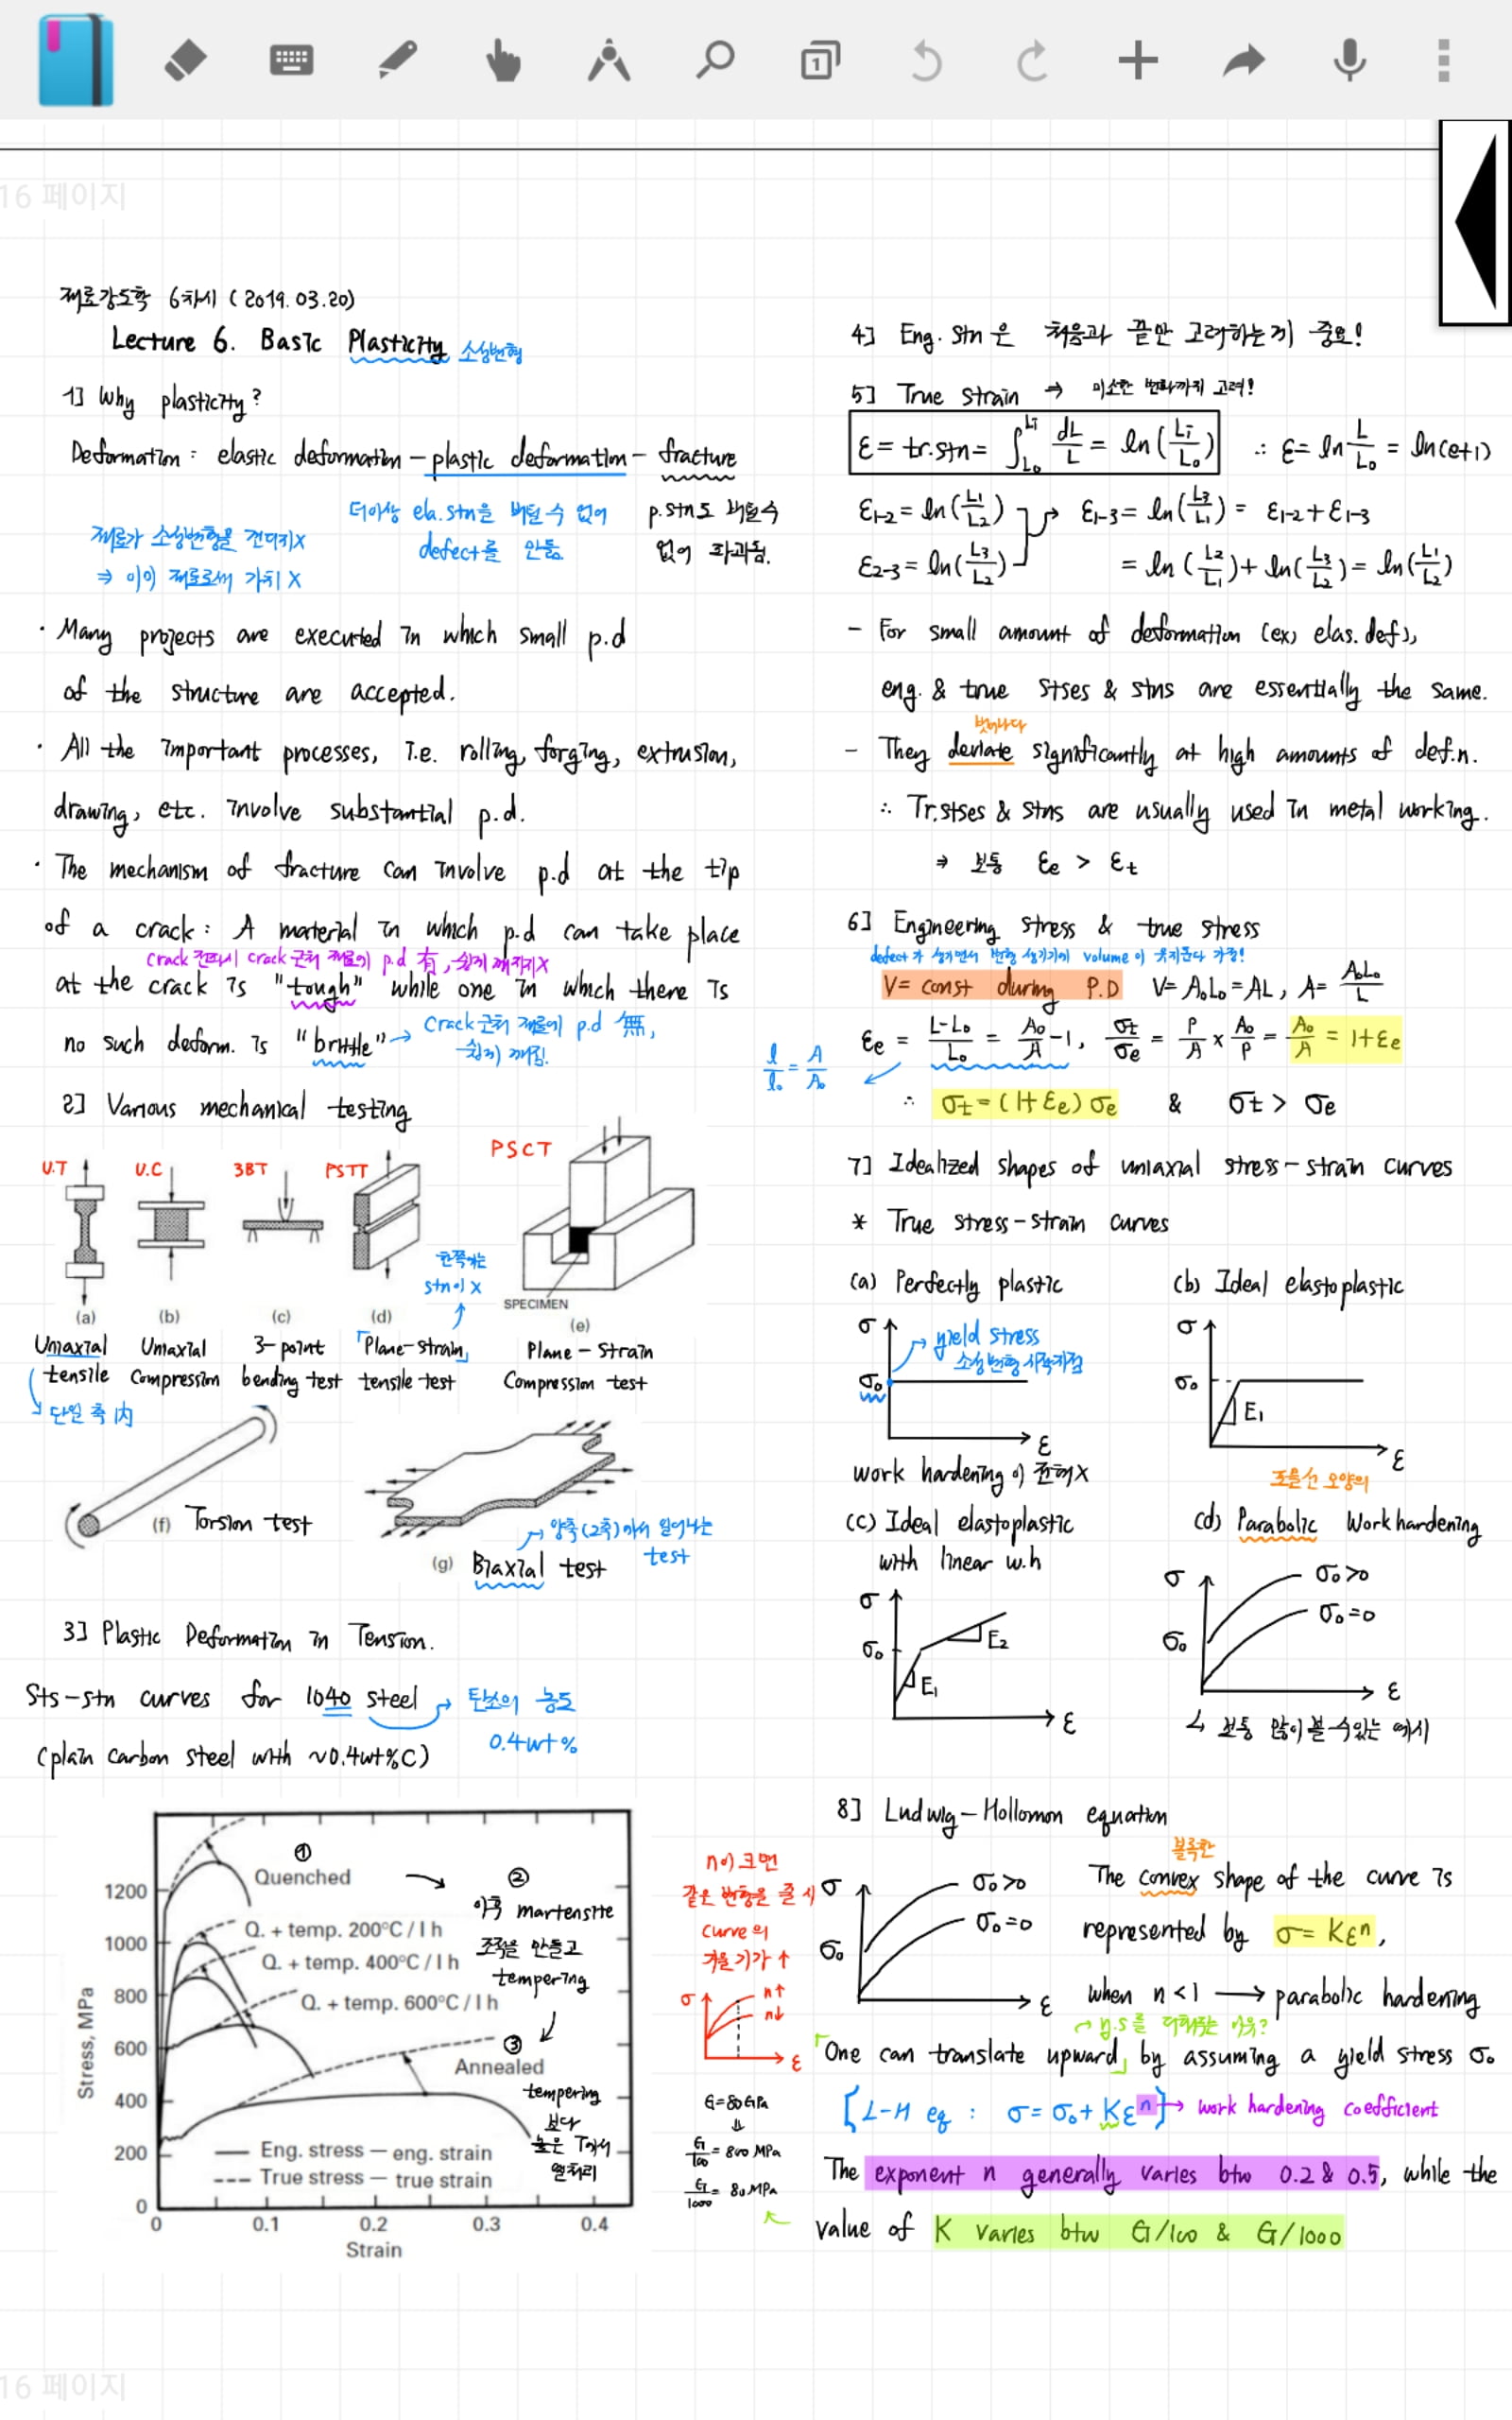 1
16 페이지
재료강도학 6차시 (2019.03.20)
Lecture 6. Basic Plasticity 소성변형
1] Why plasticity?
Deformation : elastic deformation – plastic deformation – fracture
더이상 ela.stn을 버틸 수 없어
defect를 만듦.
p.stn도 버틸 수
없어 파괴됨.
재료가 소성변형을 견디지X
⇒ 이미 재료로써 가치 X
· Many projects are executed in which small p.d
of the structure are accepted.
· All the important processes, i.e. rolling, forging, extrusion,
drawing, etc. involve substantial p.d.
· The mechanism of fracture can involve p.d at the tip
of a crack : A material in which p.d can take place
crack 전파시 crack 근처 재료에 p.d 有, 쉽게 깨지지X
at the crack is "tough" while one in which there is
no such deform. is "brittle" → crack 근처 재료에 p.d 無,
쉽게 깨짐.
2] Various mechanical testing
U.T U.C 3BT PSTT PSCT
한쪽에는
stn이 X
SPECIMEN
(a) (b) (c) (d) (e)
Uniaxial tensile
Uniaxial Compression
3-point bending test
「Plane-strain」 tensile test
Plane-strain Compression test
단일 축 内
(f) Torsion test
(g) Biaxial test
양축(2축)에서 일어나는
test
3] Plastic Deformation in Tension.
Sts-stn curves for 1040 steel → 탄소의 농도
0.4wt%
(plain carbon steel with ~0.4wt%C)
① Quenched
②
이후 martensite
조직을 만들고
tempering
Q. + temp. 200°C / 1 h
Q. + temp. 400°C / 1 h
Q. + temp. 600°C / 1 h
③
Annealed
tempering
보다
높은 T에서
열처리
Eng. stress — eng. strain
True stress — true strain
Stress, MPa
1200
1000
800
600
400
200
0
0 0.1 0.2 0.3 0.4
Strain
4] Eng. stn은 처음과 끝만 고려하는게 중요!
5] True strain ⇒ 미소한 변화까지 고려!
ε = tr.stn = ∫_{L₀}^{Li} dL/L = ln(Li/L₀) ∴ ε = ln L/L₀ = ln(e+1)
ε1-2 = ln(L1/L2) ε1-3 = ln(L3/L1) = ε1-2 + ε1-3
ε2-3 = ln(L3/L2) = ln(L2/L1) + ln(L3/L2) = ln(L1/L2)
- For small amount of deformation (ex) elas.def),
eng. & true stses & stns are essentially the same.
벗어나다
- They deviate significantly at high amounts of def.n.
∴ Tr.stses & stns are usually used in metal working.
⇒ 보통 εe > εt
6] Engineering stress & true stress
defect가 생기면서 변형 생기기에 volume이 유지된다 가정!
V = const during P.D V = A₀L₀ = AL, A = A₀L₀/L
εe = (L-L₀)/L₀ = A₀/A - 1, σt/σe = P/A × A₀/P = A₀/A = 1+εe
l/l₀ = A/A₀
∴ σt = (1+εe)σe & σt > σe
7] Idealized shapes of uniaxial stress-strain curves
* True stress-strain curves
(a) Perfectly plastic (b) Ideal elastoplastic
σ yield stress
소성변형 시작지점
σ₀
ε
σ
σ₀ E₁
ε
work hardening이 존재X
포물선 모양의
(c) Ideal elastoplastic
with linear w.h
(d) Parabolic Workhardening
σ
σ₀ E₂
E₁
ε
σ σ₀>0
σ₀=0
σ₀
ε
↳ 보통 많이 볼 수 있는 예시
8] Ludwig-Hollomon equation
n이 크면
같은 변형을 줄 시
curve의
기울기가 ↑
σ n↑
n↓
ε
σ σ₀>0
σ₀=0
σ₀
ε
볼록한
The convex shape of the curve is
represented by σ = Kεⁿ,
when n<1 → parabolic hardening
y.s를 더해주는 이유?
「One can translate upward」 by assuming a yield stress σ₀
[L-H eq : σ = σ₀ + Kεⁿ] → work hardening coefficient
G=80GPa
⇓
G/100 = 800 MPa
G/1000 = 80 MPa
The exponent n generally varies btw 0.2 & 0.5, while the
value of K varies btw G/100 & G/1000
16 페이지